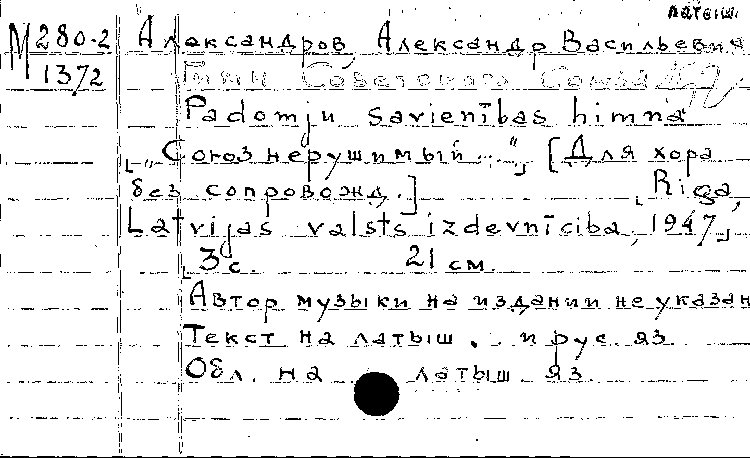 латыш.
М 280-2 Александров, Александр Васильевич
1372 Гимн Советского Союза
Padomju savienības himna
[„Союз нерушимый..."] [Для хора
без сопровожд.] [Riga,
Latvijas valsts izdevnīciba, 1947]
3 с. 21 см.
Автор музыки на издании не указан
Текст на латыш. и рус. яз.
Обл. на латыш. яз.